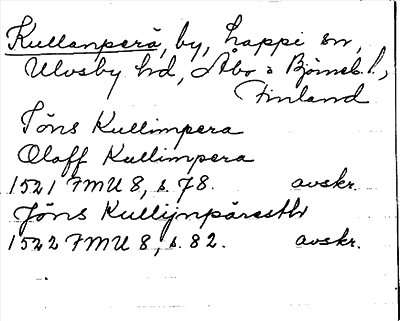 Kullanperä, by, Lappi sn,
Ulvsby hd, Åbo o Björneb. l.,
Finland
Jöns Kullimpera
Olaff Kullimpera
1521 FMU 8, s. 78. avskr.
Jöns Kullijnpäraesth
1522 FMU 8, s. 82. avskr.